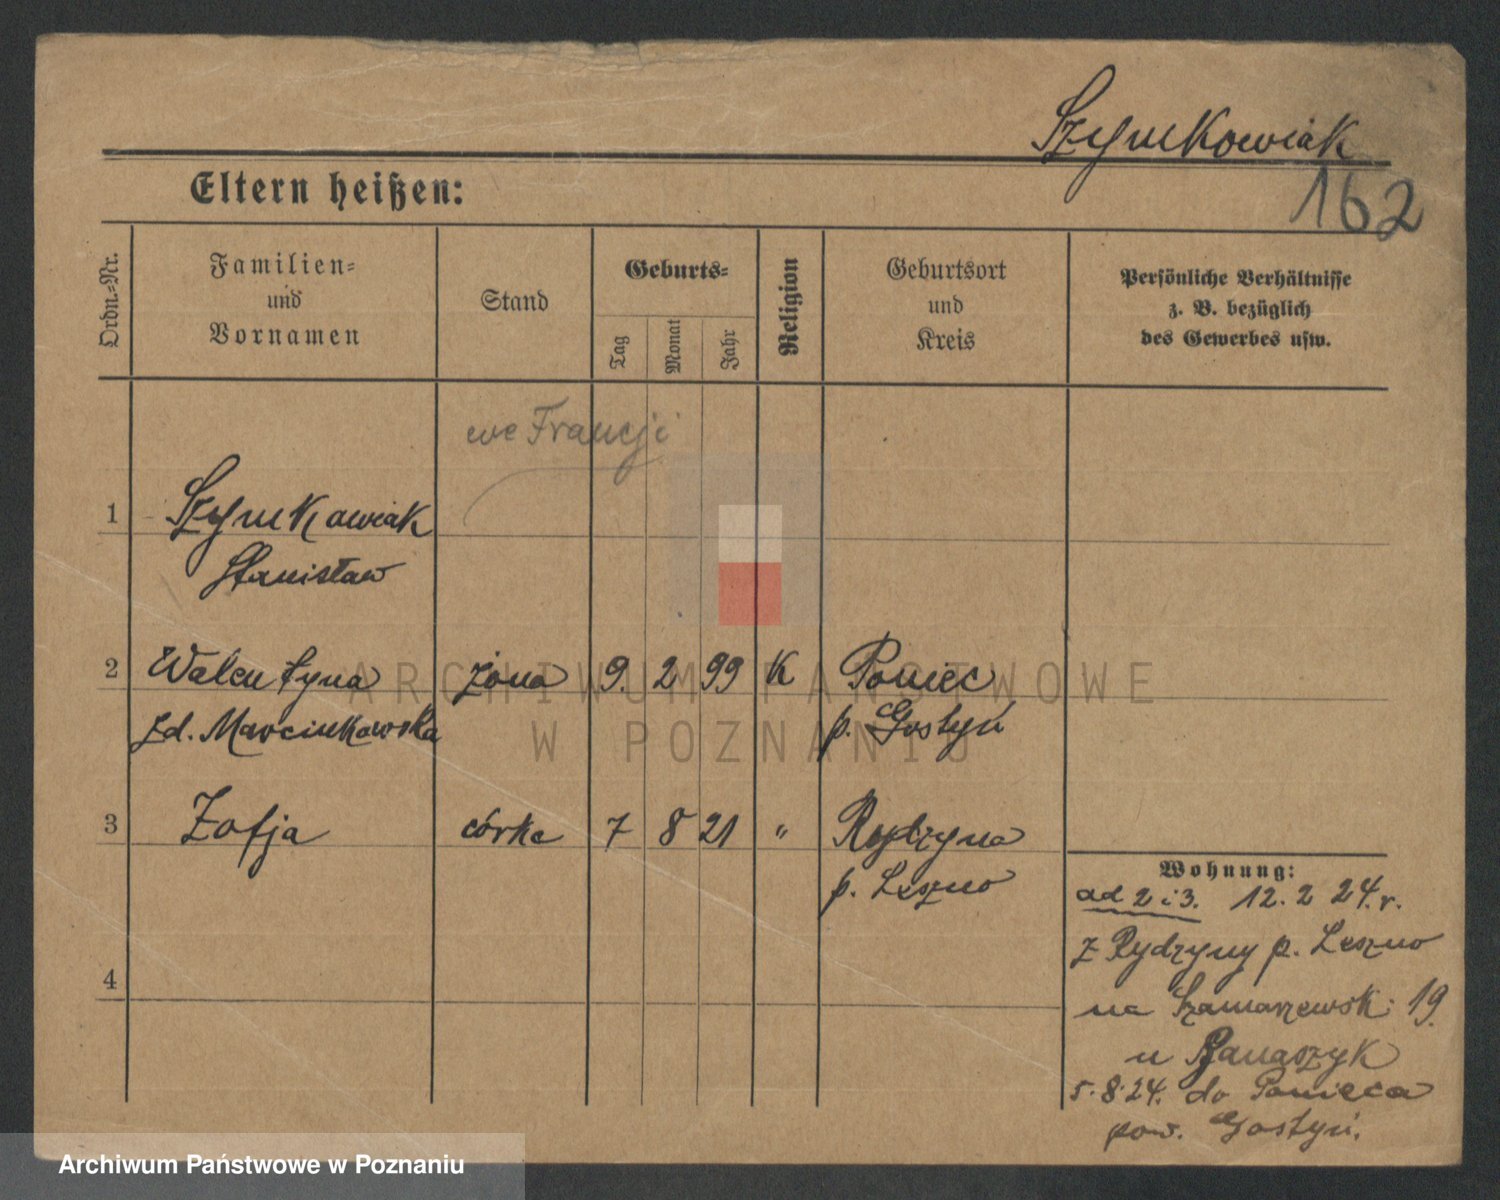 Szymkowiak
162
Eltern heißen:
Ordn.-Nr.
Familien-
und
Vornamen
Stand
Geburts-
Tag
Monat
Jahr
Religion
Geburtsort
und
Kreis
Persönliche Verhältnisse
z. B. bezüglich
des Gewerbes usw.
we Francji
1 Szymkowiak
Stanisław
2 Walentyna żona 9. 2 99 K Poniec
zd. Marcinkowska p. Gostyń
3 Zofja córka 7 8 21 " Rydzyna
p. Leszno
4
Wohnung:
ad 2 i 3. 12. 2 24. r.
z Rydzyny p. Leszno
na Szamarzewsk: 19.
u Banaszyk
5. 8. 24. do Ponieca
pow. Gostyń.
ARCHIWUM PAŃSTWOWE
W POZNANIU
Archiwum Państwowe w Poznaniu